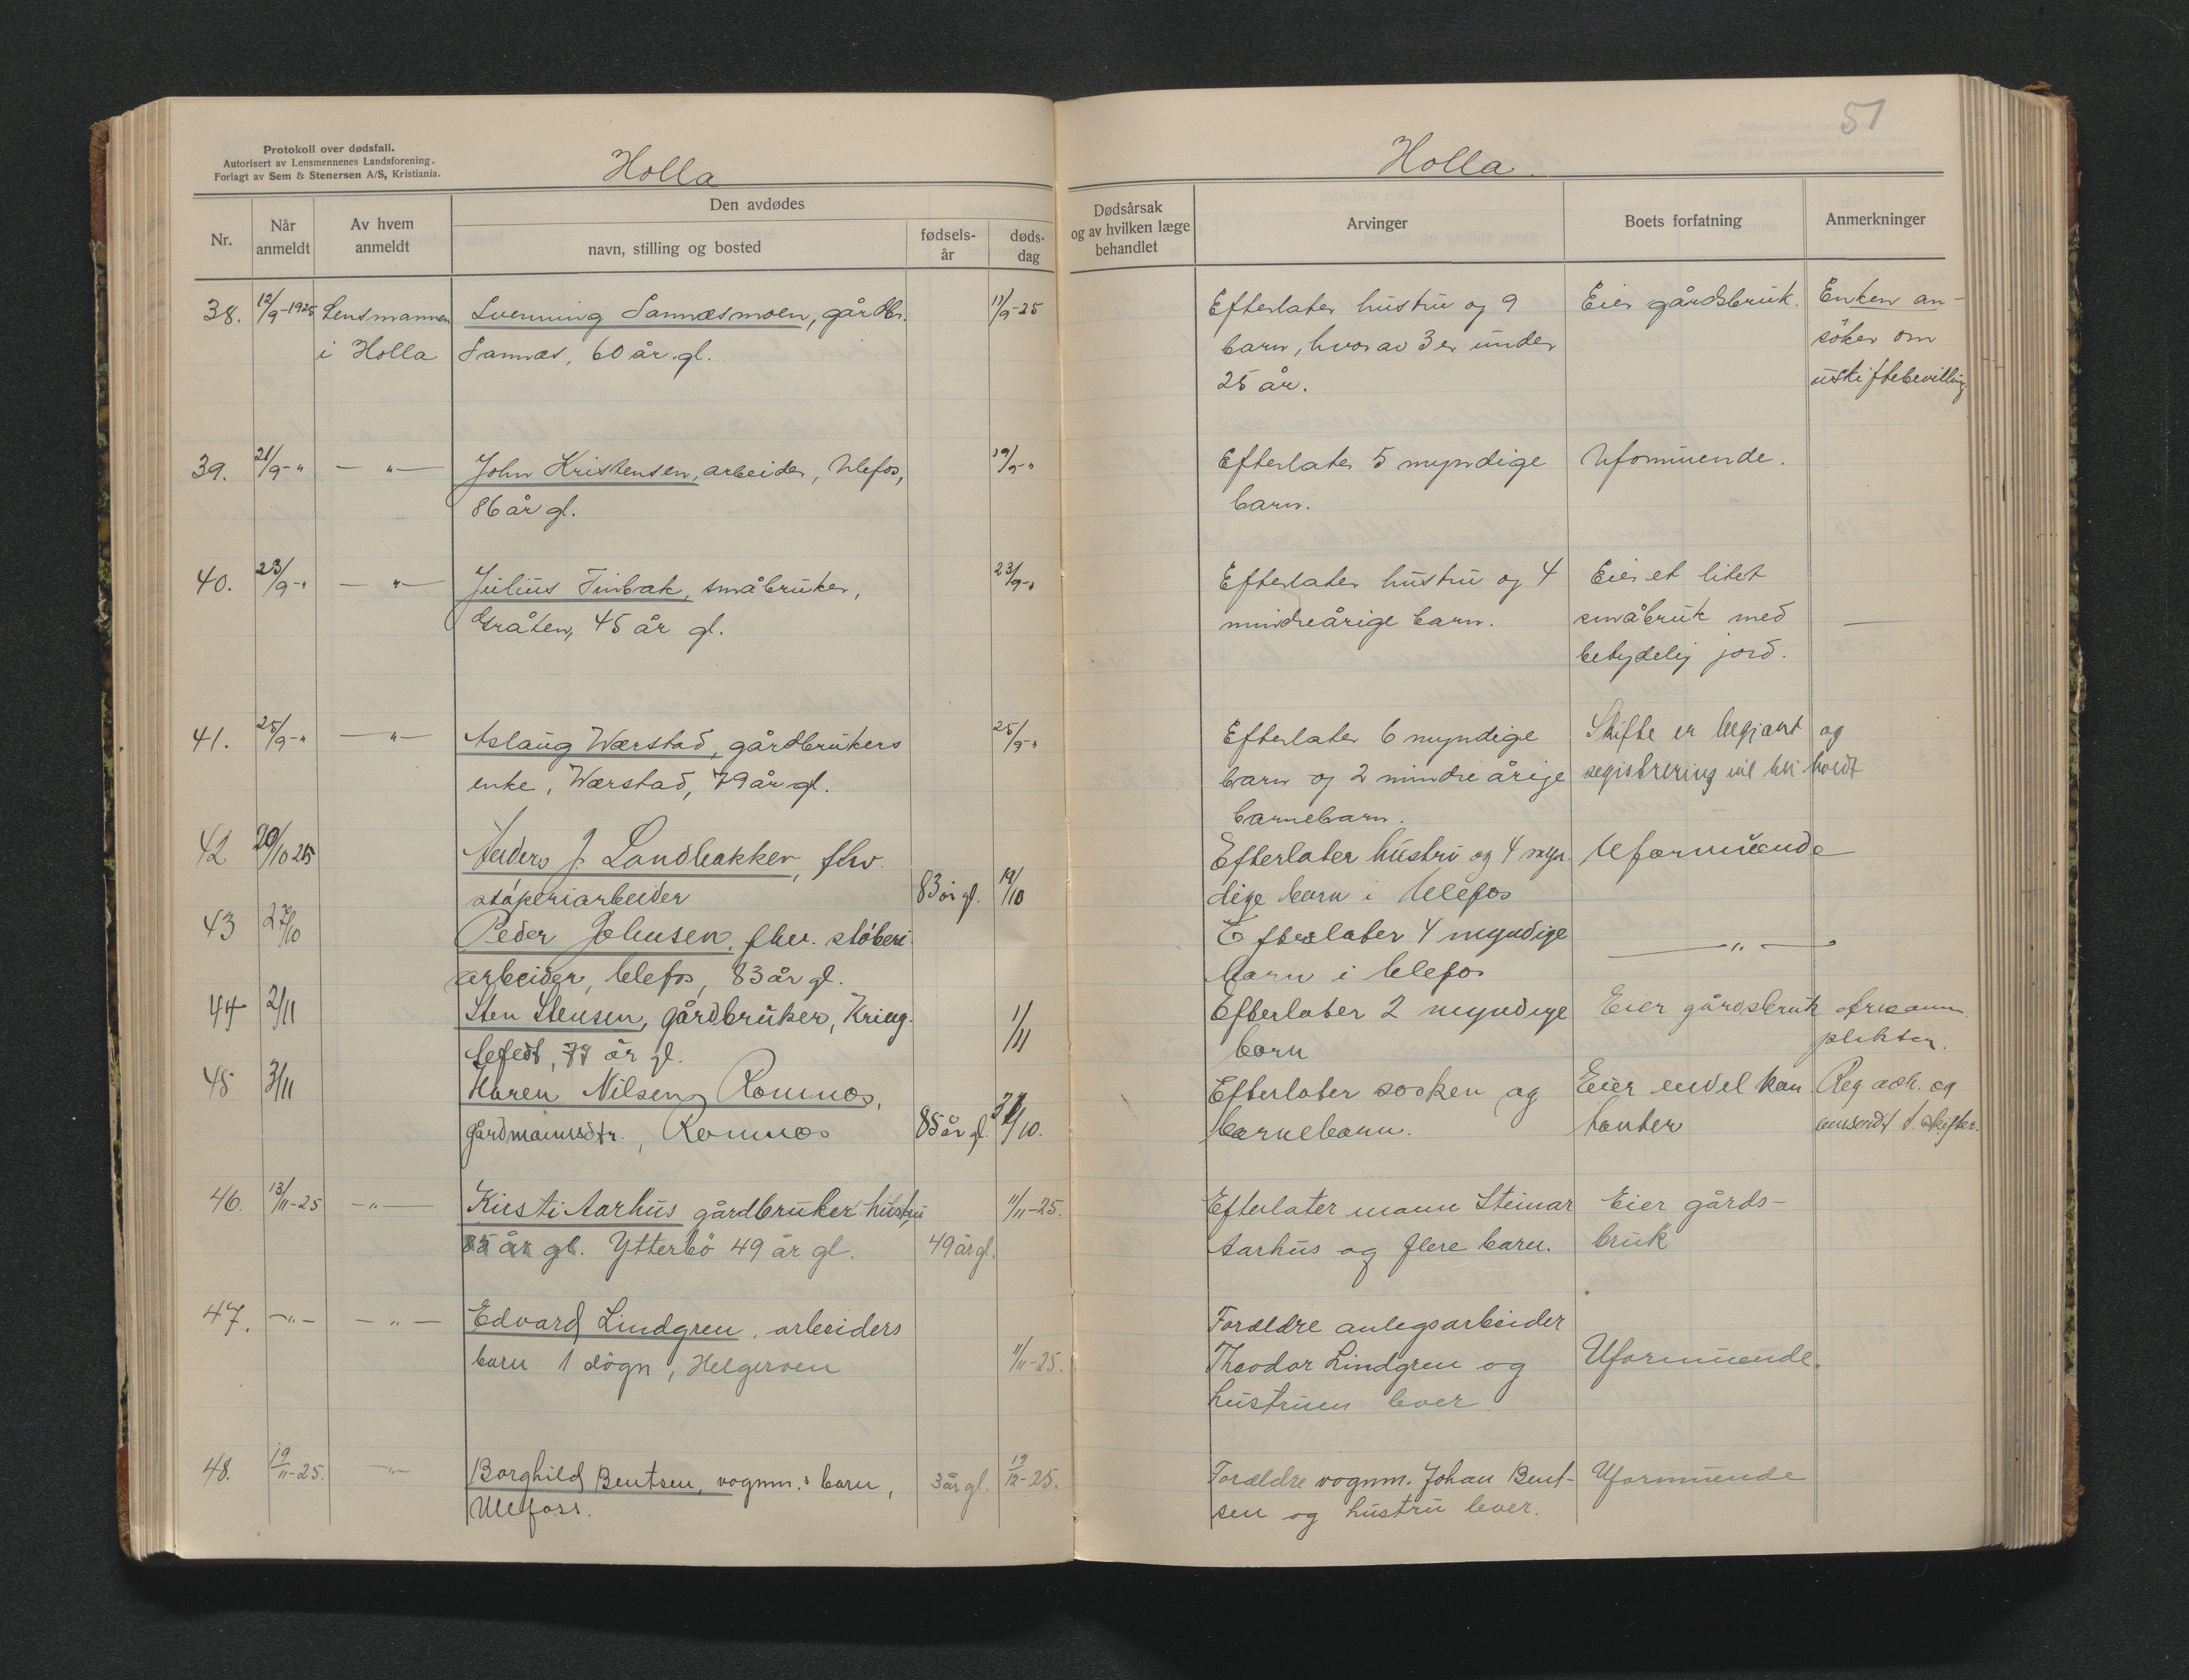 51
Protokoll over dødsfall.
Autorisert av Lensmennenes Landsforening.
Forlagt av Sem & Stenersen A/S, Kristiania.
Holla
Holla.
Nr.
Når anmeldt
Av hvem anmeldt
Den avdødes
navn, stilling og bosted
fødsels-år
døds-dag
Dødsårsak og av hvilken læge behandlet
Arvinger
Boets forfatning
Anmerkninger
38. 12/9-1925 Lensmannen Svenning Sannæsmoen, gårdbr. 11/9-25 Efterlater hustru og 9 Eier gårdsbruk. Enken an-
i Holla Sannæs, 60 år gl. barn, hvorav 3 er under søker om
25 år. uskiftebevilling.
39. 21/9-" — " — John Kristensen, arbeider, Ulefos, 19/9-" Efterlater 5 myndige Uformuende.
86 år gl. barn.
40. 23/9-" — " — Julius Finbak, småbruker, 23/9-" Efterlater hustru og 4 Eier et litet
Gråten, 45 år gl. mindreårige barn. småbruk med —
betydelig jord.
41. 25/9-" — " — Aslaug Wærstad, gårdbrukers 25/9-" Efterlater 6 myndige Skifte er begjært og
enke, Wærstad, 79 år gl. barn og 2 mindreårige registrering vil bli holdt
barnebarn.
42 20/10 25 Anders J. Landbakken, fhv. Efterlater hustru og 4 myn- Uformuende
støperiarbeider 83 år gl. 19/10 dige barn i Ulefos
43 27/10 Peder Johnsen, fhv. støberi- Efterlater 4 myndige — " —
arbeider, Ulefos, 83 år gl. barn i Ulefos
44 2/11 Sten Stensen, gårdbruker, Kring- 1/11 Efterlater 2 myndige Eier gårdsbruk
77 år gl. barn plikter.
45 3/11 Karen Nilsen Romnes, Efterlater søsken og Eier endel kon- Reg. adh. og
gårdmannsdtr., Romnes 85 år gl. /10. barnebarn. tanter
46. 13/11-25 — " — Kirsti Aarhus gårdbruker hustru 11/11-25. Efterlater mann Steinar Eier gårds-
år gl. Ytterbö 49 år gl. 49 år gl. Aarhus og flere barn. bruk
47. — " — — " — Edvard Lindgren, arbeiders Forældre anlegsarbeider
barn 1 døgn, Helgeroen 11/11-25. Theodor Lindgren og Uformuende.
hustruen lever.
48. 19/11-25. — " — Borghild Bentsen, vognm.s barn, 3 år gl. 19/12-25. Forældre vognm. Johan Bent- Uformuende
Ulefoss. sen og hustru lever.